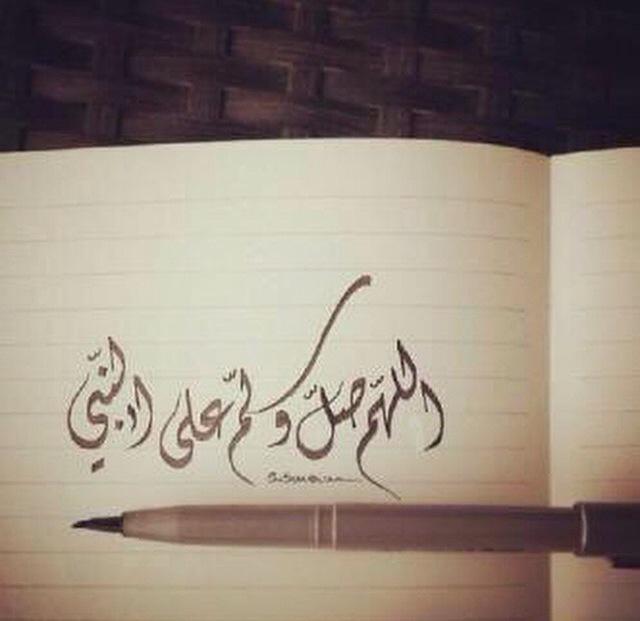 اللهمّ صلّ وسلّم على النبيّ